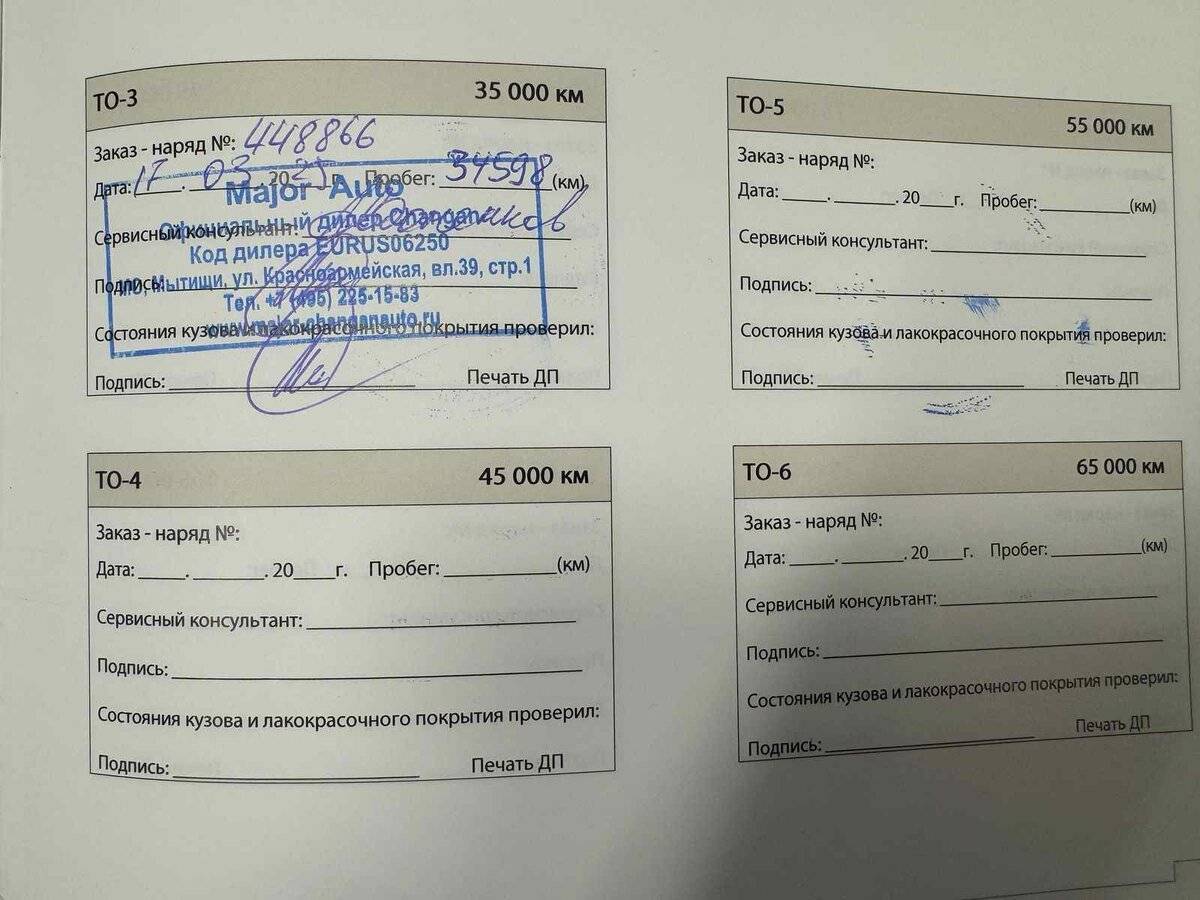 ТО-3 35 000 км
Заказ - наряд №: 448866
Дата: 17. 03. 20 г. Пробег: 34598 (км)
Major Auto
Официальный дилер Changan
Сервисный консультант:
Код дилера EURUS06250
МО, Мытищи, ул. Красноармейская, вл.39, стр.1
Подпись:
Тел. +7 (495) 225-15-83
www.major-changanauto.ru
Состояния кузова и лакокрасочного покрытия проверил:
Подпись: Печать ДП
ТО-4 45 000 км
Заказ - наряд №:
Дата: ____. ____. 20__г. Пробег: ________(км)
Сервисный консультант:
Подпись:
Состояния кузова и лакокрасочного покрытия проверил:
Подпись: Печать ДП
ТО-5 55 000 км
Заказ - наряд №:
Дата: ____. ____. 20__г. Пробег: ________(км)
Сервисный консультант:
Подпись:
Состояния кузова и лакокрасочного покрытия проверил:
Подпись: Печать ДП
ТО-6 65 000 км
Заказ - наряд №:
Дата: ____. ____. 20__г. Пробег: ________(км)
Сервисный консультант:
Подпись:
Состояния кузова и лакокрасочного покрытия проверил:
Подпись: Печать ДП